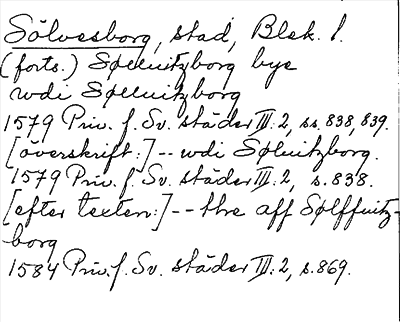 Sölvesborg, stad, Blek. l.
(forts.) Sølluitzborg bye
wdi Søluitzborg
1579 Priv. f. Sv. städer III: 2, ss. 838, 839.
[överskrift:] -- wdi Søluitzborg.
1579 Priv. f. Sv. städer III: 2, s. 838.
[efter texten:] -- thre aff Sølffuitz-
borg
1584 Priv. f. Sv. städer III: 2, s. 869.